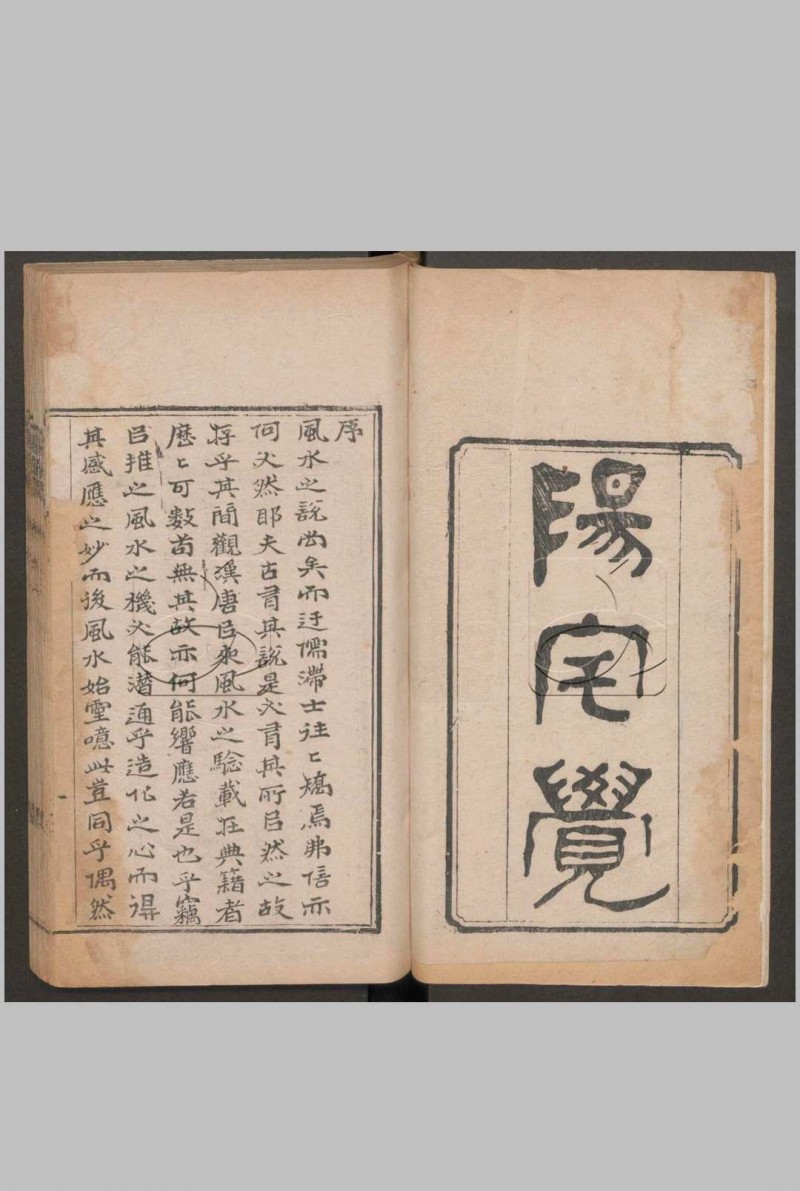 陽宅覺
序
風水之說尚矣而迂儒滯士往〻矯焉弗信亦
何必然耶夫古有其說是必有其所㠯然之故
存乎其間觀漢唐㠯來風水之驗載在典籍者
歷〻可數苟無其故亦何能響應若是也乎竊
㠯推之風水之機必能潛通乎造化之心而得
其感應之妙而後風水始靈噫此豈同乎偶然